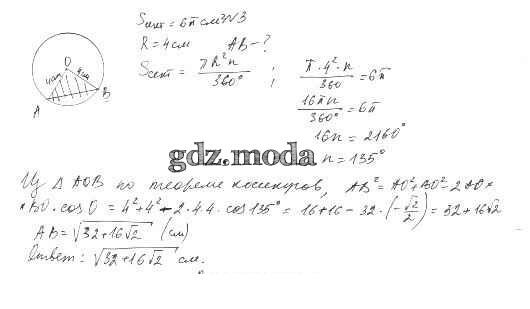 Sсект = 6π см² №3
R = 4 см AB - ?
Sсект = πR²n / 360° ; π·4²·n / 360 = 6π
16πn / 360° = 6π
16n = 2160°
n = 135°
O
4см 4см
A B
gdz.moda
Из Δ AOB по теореме косинусов, AB² = AO² + BO² - 2 AO ×
× BO · cos O = 4² + 4² - 2·4·4 · cos 135° = 16 + 16 - 32 · (-√2/2) = 32 + 16√2
AB = √32 + 16√2 (см)
Ответ: √32 + 16√2 см.